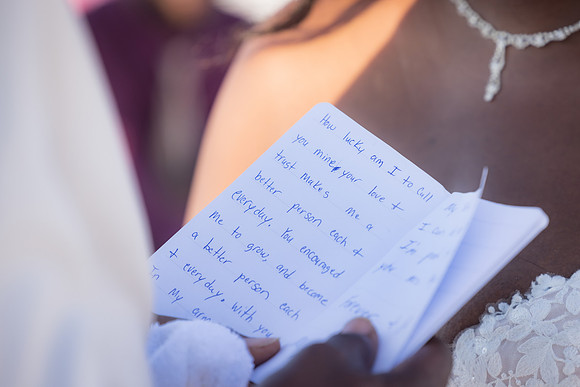 How lucky am I to call
you mine, your love +
trust makes me a
better person each +
everyday. You encouraged
me to grow, and become
a better person each
+ everyday. With you
In My arms